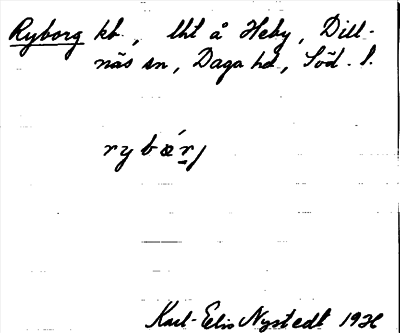 Ryborg kb., lht å Heby, Dill-
näs sn, Daga hd, Söd. l.
rybǽrj
Karl-Eelis Nystedt 1936